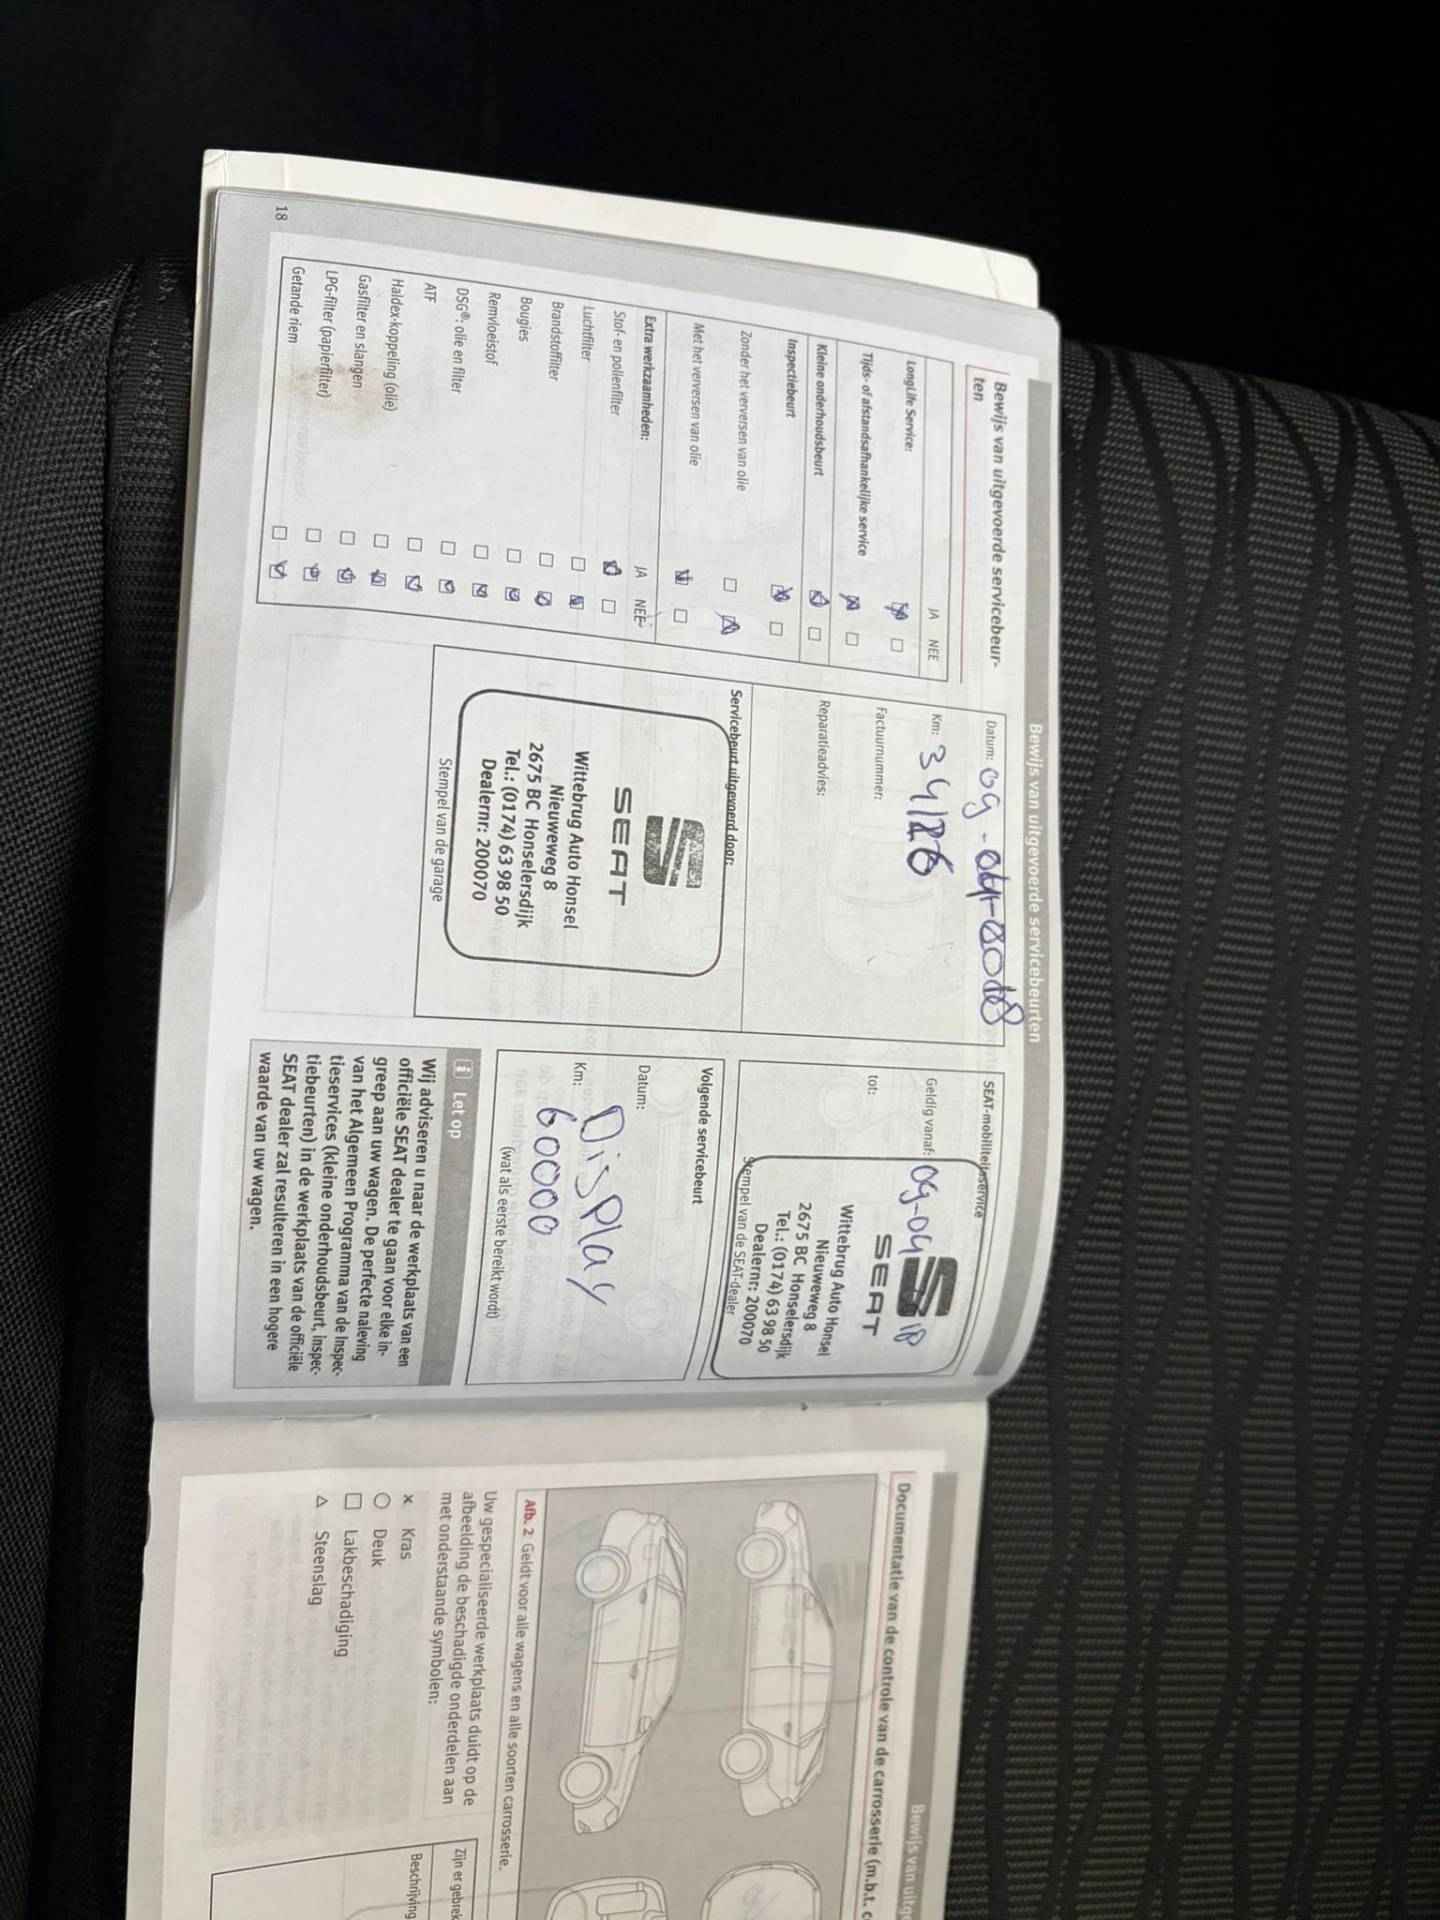 Bewijs van uitgevoerde servicebeurten
Bewijs van uitgevoerde servicebeur-
ten
JA NEE
LongLife Service:
Tijds- of afstandsafhankelijke service
Kleine onderhoudsbeurt
Inspectiebeurt
Zonder het verversen van olie
Met het verversen van olie
Extra werkzaamheden: JA NEE
Stof- en pollenfilter
Luchtfilter
Brandstoffilter
Bougies
Remvloeistof
DSG®: olie en filter
ATF
Haldex-koppeling (olie)
Gasfilter en slangen
LPG-filter (papierfilter)
Getande riem
18
Datum: 09-04-2018
Km: 34126
Factuurnummer:
Reparatieadvies:
Servicebeurt uitgevoerd door:
SEAT
Wittebrug Auto Honsel
Nieuweweg 8
2675 BC Honselersdijk
Tel.: (0174) 63 98 50
Dealernr: 200070
Stempel van de garage
SEAT-mobiliteitsservice
Geldig vanaf: 09-04 18
tot:
SEAT
Wittebrug Auto Honsel
Nieuweweg 8
2675 BC Honselersdijk
Tel.: (0174) 63 98 50
Dealernr: 200070
Stempel van de SEAT-dealer
Volgende servicebeurt
Datum: Display
Km: 60000
(wat als eerste bereikt wordt)
i Let op
Wij adviseren u naar de werkplaats van een
officiële SEAT dealer te gaan voor elke in-
greep aan uw wagen. De perfecte naleving
van het Algemeen Programma van de Inspec-
tieservices (kleine onderhoudsbeurt, inspec-
tiebeurten) in de werkplaats van de officiële
SEAT dealer zal resulteren in een hogere
waarde van uw wagen.
Bewijs van uitge
Documentatie van de controle van de carrosserie (m.b.t. c
Afb. 2 Geldt voor alle wagens en alle soorten carrosserie.
Uw gespecialiseerde werkplaats duidt op de
afbeelding de beschadigde onderdelen aan
met onderstaande symbolen:
× Kras
○ Deuk
□ Lakbeschadiging
△ Steenslag
Zijn er gebrek
Beschrijving